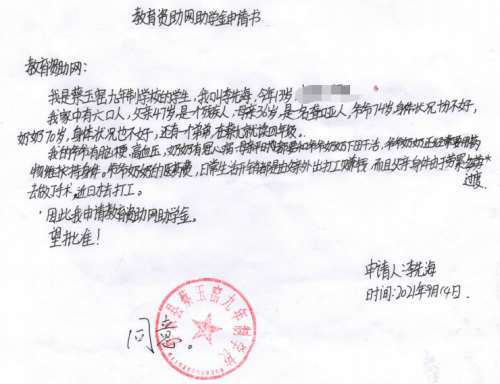 教育资助网助学金申请书
教育资助网：
我是蔡玉窑九年制学校的学生，我叫李先海，今年13岁，
我家中有六口人，父亲47岁，是一个残疾人，母亲36岁，是一名聋哑人，爷爷74岁，身体状况也不好，
奶奶70岁，身体状况也不好，还有一个弟弟，在蔡九就读四年级。
我的爷爷有脑梗、高血压，奶奶有冠心病，母亲和爷爷奶奶下田干活，爷爷奶奶还
物维持身体。爷爷奶奶的医药费，日常生活开销都是由父亲外出打工赚钱，而且父亲身体由于劳累过度
去做了手术，近日才去打工。
因此我申请教育资助网助学金。
望批准！
申请人：李先海
时间：2021年9月14日.
同意。
县蔡玉窑九年制学校